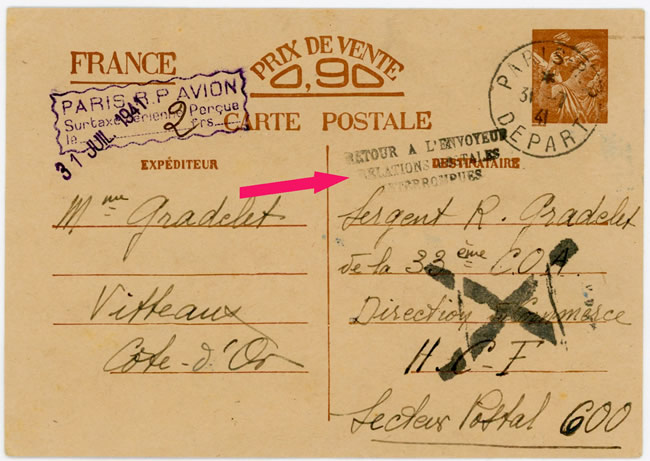 FRANCE
PRIX DE VENTE
0,90
PARIS-R.P
31
41
DEPART
PARIS R.P. AVION
Surtaxe Aérienne Perçue
le frs
2
31 JUIL 1941
CARTE POSTALE
RETOUR A L'ENVOYEUR
RELATIONS POSTALES
INTERROMPUES
EXPÉDITEUR
DESTINATAIRE
Mme Gradelet
Vitteaux
Côte-d'Or
Sergent R. Gradelet
de la 33ème C.O.A.
Direction Commerce
H.C-F
Secteur Postal 600